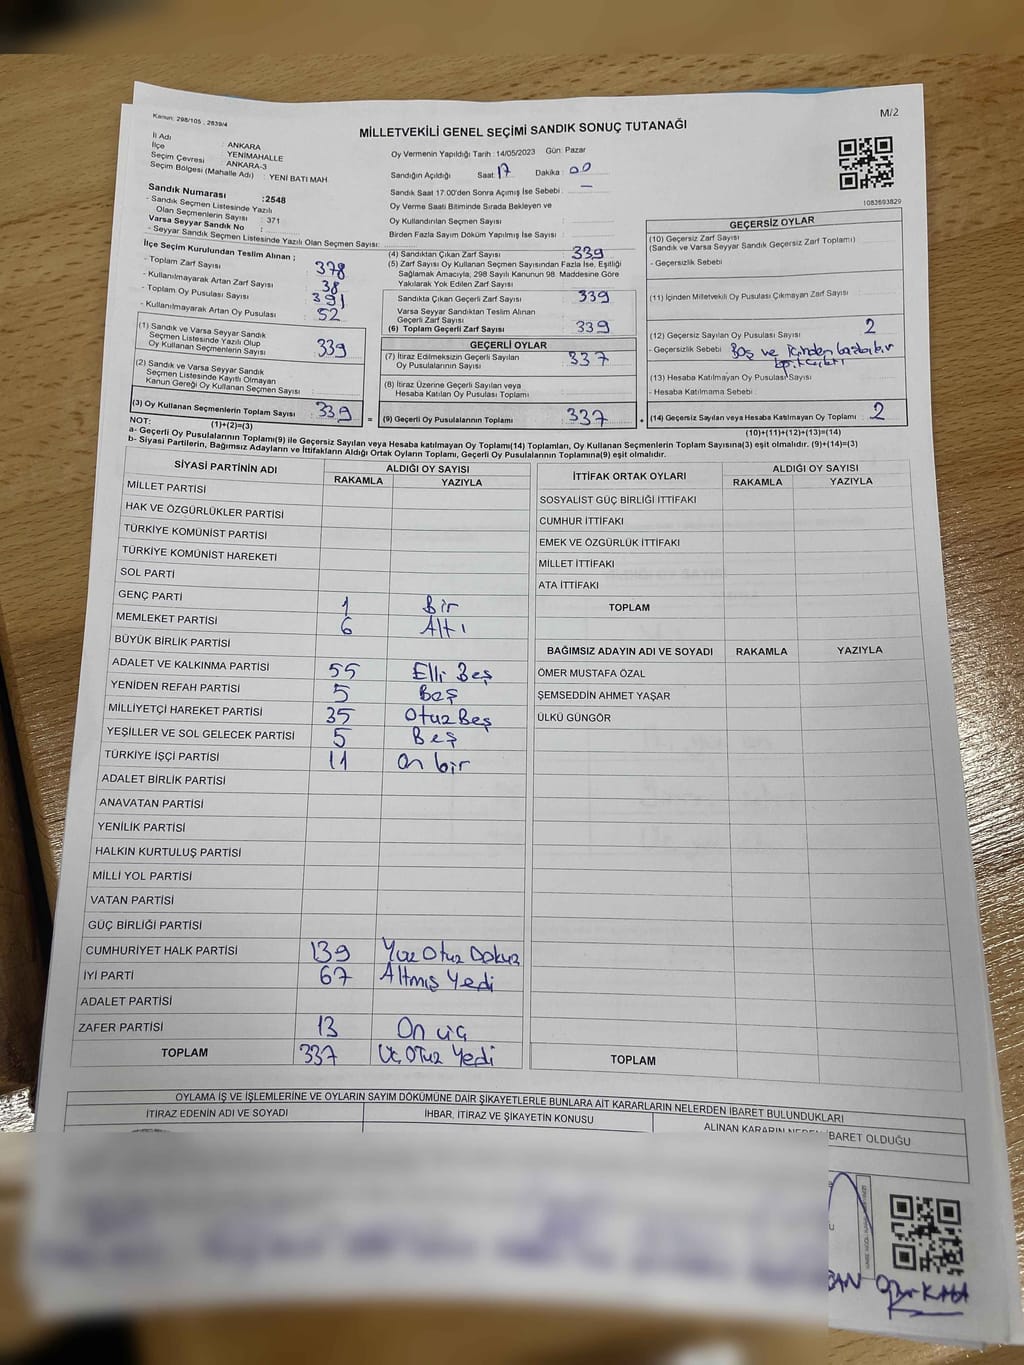 Kanun: 298/105 , 2839/4
M/2
MİLLETVEKİLİ GENEL SEÇİMİ SANDIK SONUÇ TUTANAĞI
İl Adı : ANKARA
İlçe : YENİMAHALLE
Seçim Çevresi : ANKARA-3
Seçim Bölgesi (Mahalle Adı) : YENİ BATI MAH
Oy Vermenin Yapıldığı Tarih : 14/05/2023 Gün: Pazar
Sandığın Açıldığı Saat : 17 Dakika : 00
Sandık Saat 17:00'den Sonra Açımış İse Sebebi : —
Oy Verme Saati Bitiminde Sırada Bekleyen ve
Oy Kullandırılan Seçmen Sayısı :
Birden Fazla Sayım Dökÿm Yapılmış İse Sayısı :
1083693829
Sandık Numarası :2548
- Sandık Seçmen Listesinde Yazılı
Olan Seçmenlerin Sayısı : 371
Varsa Seyyar Sandık No :
- Seyyar Sandık Seçmen Listesinde Yazılı Olan Seçmen Sayısı:
İlçe Seçim Kurulundan Teslim Alınan ;
- Toplam Zarf Sayısı : 378
- Kullanılmayarak Artan Zarf Sayısı : 38
- Toplam Oy Pusulası Sayısı : 391
- Kullanılmayarak Artan Oy Pusulası : 52
(1) Sandık ve Varsa Seyyar Sandık
Seçmen Listesinde Yazılı Olup
Oy Kullanan Seçmenlerin Sayısı : 339
(2) Sandık ve Varsa Seyyar Sandık
Seçmen Listesinde Kayıtlı Olmayan
Kanun Gereği Oy Kullanan Seçmen Sayısı :
(3) Oy Kullanan Seçmenlerin Toplam Sayısı : 339 =
(1)+(2)=(3)
(4) Sandıktan Çıkan Zarf Sayısı : 339
(5) Zarf Sayısı Oy Kullanan Seçmen Sayısından Fazla İse, Eşitliği
Sağlamak Amacıyla, 298 Sayılı Kanunun 98. Maddesine Göre
Yakılarak Yok Edilen Zarf Sayısı :
Sandıkta Çıkan Geçerli Zarf Sayısı : 339
Varsa Seyyar Sandıktan Teslim Alınan
Geçerli Zarf Sayısı :
(6) Toplam Geçerli Zarf Sayısı : 339
GEÇERLİ OYLAR
(7) İtiraz Edilmeksizin Geçerli Sayılan
Oy Pusulalarının Sayısı : 337
(8) İtiraz Üzerine Geçerli Sayılan veya
Hesaba Katılan Oy Pusulası Toplamı :
(9) Geçerli Oy Pusulalarının Toplamı : 337 +
GEÇERSİZ OYLAR
(10) Geçersiz Zarf Sayısı
(Sandık ve Varsa Seyyar Sandık Geçersiz Zarf Toplamı) :
- Geçersizlik Sebebi :
(11) İçinden Milletvekili Oy Pusulası Çıkmayan Zarf Sayısı :
(12) Geçersiz Sayılan Oy Pusulası Sayısı : 2
- Geçersizlik Sebebi : Boş ve içinden
(13) Hesaba Katılmayan Oy Pusulası Sayısı :
- Hesaba Katılmama Sebebi :
(14) Geçersiz Sayılan veya Hesaba Katılmayan Oy Toplamı : 2
(10)+(11)+(12)+(13)=(14)
NOT:
a- Geçerli Oy Pusulalarının Toplamı(9) ile Geçersiz Sayılan veya Hesaba katılmayan Oy Toplamı(14) Toplamları, Oy Kullanan Seçmenlerin Toplam Sayısına(3) eşit olmalıdır. (9)+(14)=(3)
b- Siyasi Partilerin, Bağımsız Adayların ve İttifakların Aldığı Ortak Oyların Toplamı, Geçerli Oy Pusulalarının Toplamına(9) eşit olmalıdır.
SİYASİ PARTİNİN ADI ALDIĞI OY SAYISI
RAKAMLA YAZIYLA
MİLLET PARTİSİ
HAK VE ÖZGÜRLÜKLER PARTİSİ
TÜRKİYE KOMÜNİST PARTİSİ
TÜRKİYE KOMÜNİST HAREKETİ
SOL PARTİ
GENÇ PARTİ 1 Bir
MEMLEKET PARTİSİ 6 Altı
BÜYÜK BİRLİK PARTİSİ
ADALET VE KALKINMA PARTİSİ 55 Elli Beş
YENİDEN REFAH PARTİSİ 5 Beş
MİLLİYETÇİ HAREKET PARTİSİ 35 Otuz Beş
YEŞİLLER VE SOL GELECEK PARTİSİ 5 Beş
TÜRKİYE İŞÇİ PARTİSİ 11 On bir
ADALET BİRLİK PARTİSİ
ANAVATAN PARTİSİ
YENİLİK PARTİSİ
HALKIN KURTULUŞ PARTİSİ
MİLLİ YOL PARTİSİ
VATAN PARTİSİ
GÜÇ BİRLİĞİ PARTİSİ
CUMHURİYET HALK PARTİSİ 139 Yüz Otuz Dokuz
İYİ PARTİ 67 Altmış Yedi
ADALET PARTİSİ
ZAFER PARTİSİ 13 On üç
TOPLAM 337 Üç Otuz Yedi
İTTİFAK ORTAK OYLARI ALDIĞI OY SAYISI
RAKAMLA YAZIYLA
SOSYALİST GÜÇ BİRLİĞİ İTTİFAKI
CUMHUR İTTİFAKI
EMEK VE ÖZGÜRLÜK İTTİFAKI
MİLLET İTTİFAKI
ATA İTTİFAKI
TOPLAM
BAĞIMSIZ ADAYIN ADI VE SOYADI RAKAMLA YAZIYLA
ÖMER MUSTAFA ÖZAL
ŞEMSEDDİN AHMET YAŞAR
ÜLKÜ GÜNGÖR
TOPLAM
OYLAMA İŞ VE İŞLEMLERİNE VE OYLARIN SAYIM DÖKÜMÜNE DAİR ŞİKAYETLERLE BUNLARA AİT KARARLARIN NELERDEN İBARET BULUNDUKLARI
İTİRAZ EDENİN ADI VE SOYADI İHBAR, İTİRAZ VE ŞİKAYETİN KONUSU ALINAN KARARIN NEDEN İBARET OLDUĞU